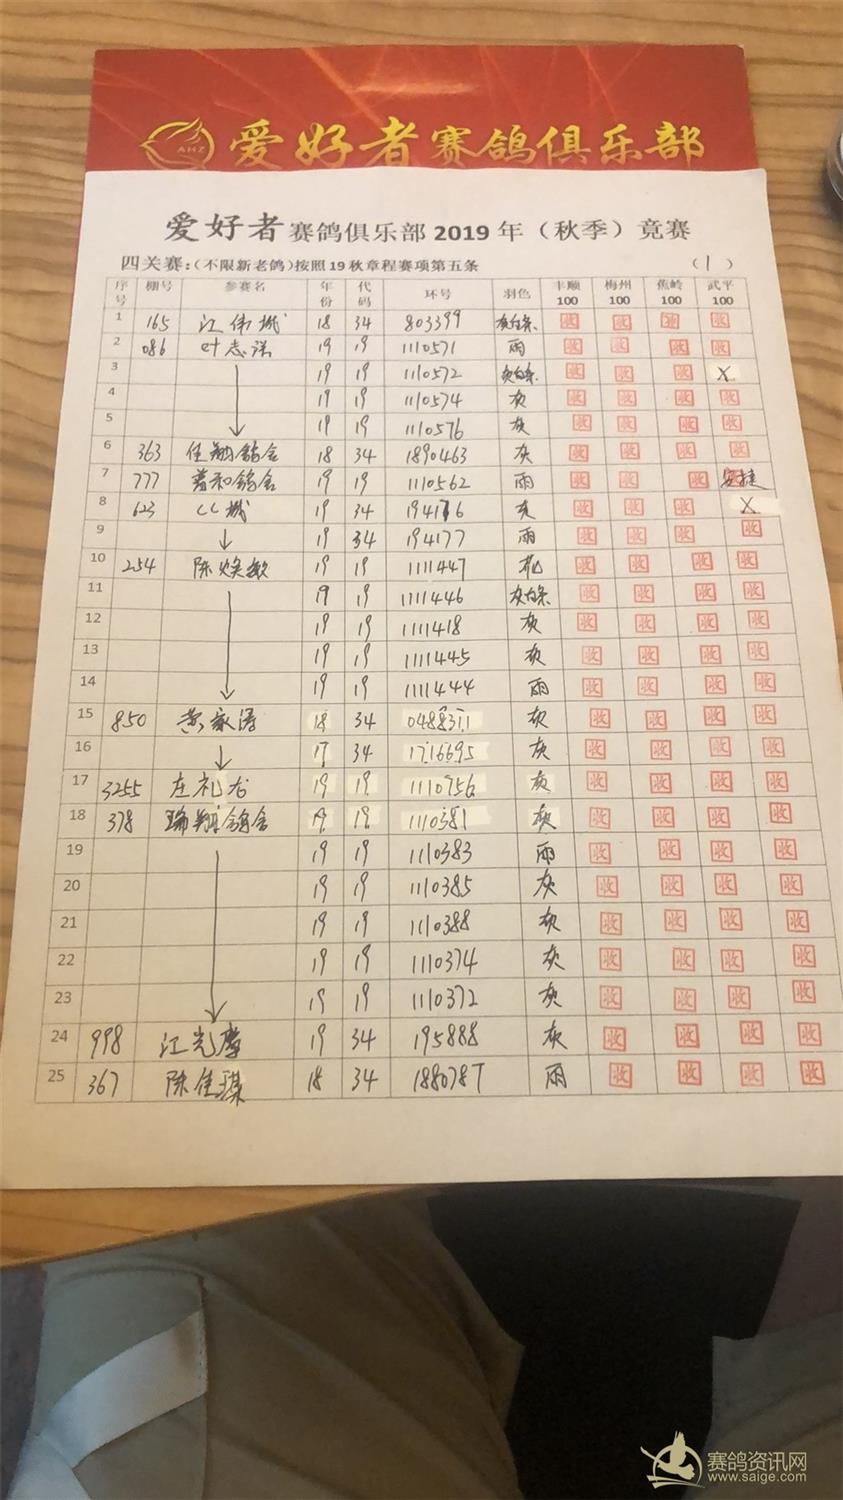 AHZ 爱好者赛鸽俱乐部
爱好者赛鸽俱乐部2019年（秋季）竞赛
四关赛:（不限新老鸽）按照19秋章程赛项第五条 （1）
序号 棚号 参赛名 年份 代码 环号 羽色 丰顺100 梅州100 蕉岭100 武平100
1 165 江伟城 18 34 803399 灰白条 收 收 收 收
2 086 叶志 19 19 1110571 雨 收 收 收 收
3 19 19 1110572 灰白条 收 收 收 X
4 19 19 1110574 灰 收 收 收 收
5 19 19 1110576 灰 收 收 收 收
6 363 佳翔鸽舍 18 34 1890463 灰 收 收 收 收
7 777 鸽舍 19 19 1110562 雨 收 收 收
8 623 LL城 19 34 194176 灰 收 收 收 X
9 19 34 194177 雨 收 收 收 收
10 254 陈焕 19 19 1111447 花 收 收 收 收
11 19 19 1111446 灰白条 收 收 收 收
12 19 19 1111418 灰 收 收 收 收
13 19 19 1111445 灰 收 收 收 收
14 19 19 1111444 雨 收 收 收 收
15 850 黄家涛 18 34 0488371 灰 收 收 收 收
16 17 34 1716695 灰 收 收 收 收
17 3255 庄礼龙 19 19 1110756 灰 收 收 收 收
18 378 瑞翔鸽舍 19 19 1110381 灰 收 收 收 收
19 19 19 1110383 雨 收 收 收 收
20 19 19 1110385 灰 收 收 收 收
21 19 19 1110388 灰 收 收 收 收
22 19 19 1110374 灰 收 收 收 收
23 19 19 1110372 灰 收 收 收 收
24 998 江光 19 34 195888 灰 收 收 收 收
25 367 陈佳 18 34 1880787 雨 收 收 收 收
赛鸽资讯网
www.saige.com